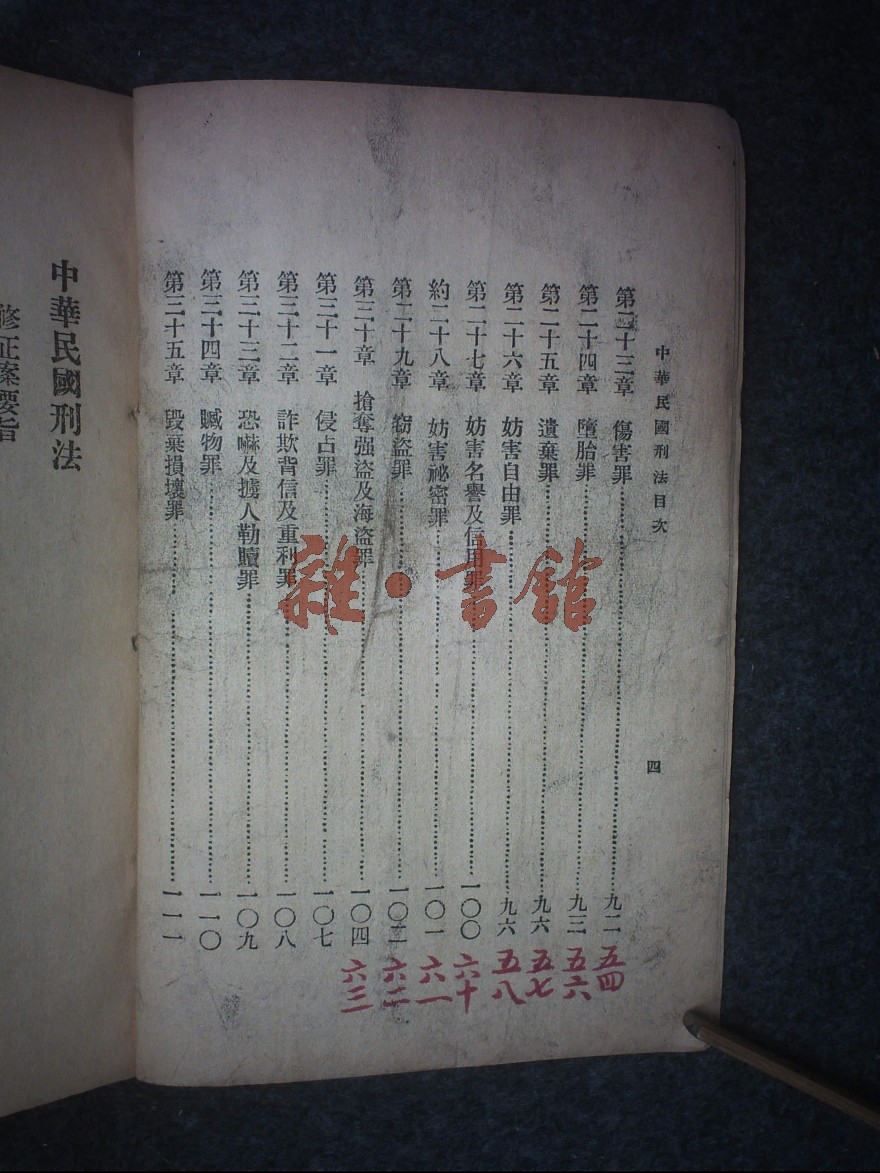 中華民國刑法目次
四
第二十三章　傷害罪……九二
五四
第二十四章　墮胎罪……九三
五六
第二十五章　遺棄罪……九六
五七
第二十六章　妨害自由罪……九六
五八
第二十七章　妨害名譽及信用罪……一〇〇
六十
約二十八章　妨害祕密罪……一〇一
六一
第二十九章　竊盜罪……一〇二
六二
第三十章　搶奪强盜及海盜罪……一〇四
六三
第三十一章　侵占罪……一〇七
第三十二章　詐欺背信及重利罪……一〇八
第三十三章　恐嚇及擄人勒贖罪……一〇九
第三十四章　贓物罪……一一〇
第三十五章　毀棄損壞罪……一一一
雜·書館
中華民國刑法
修正案要旨